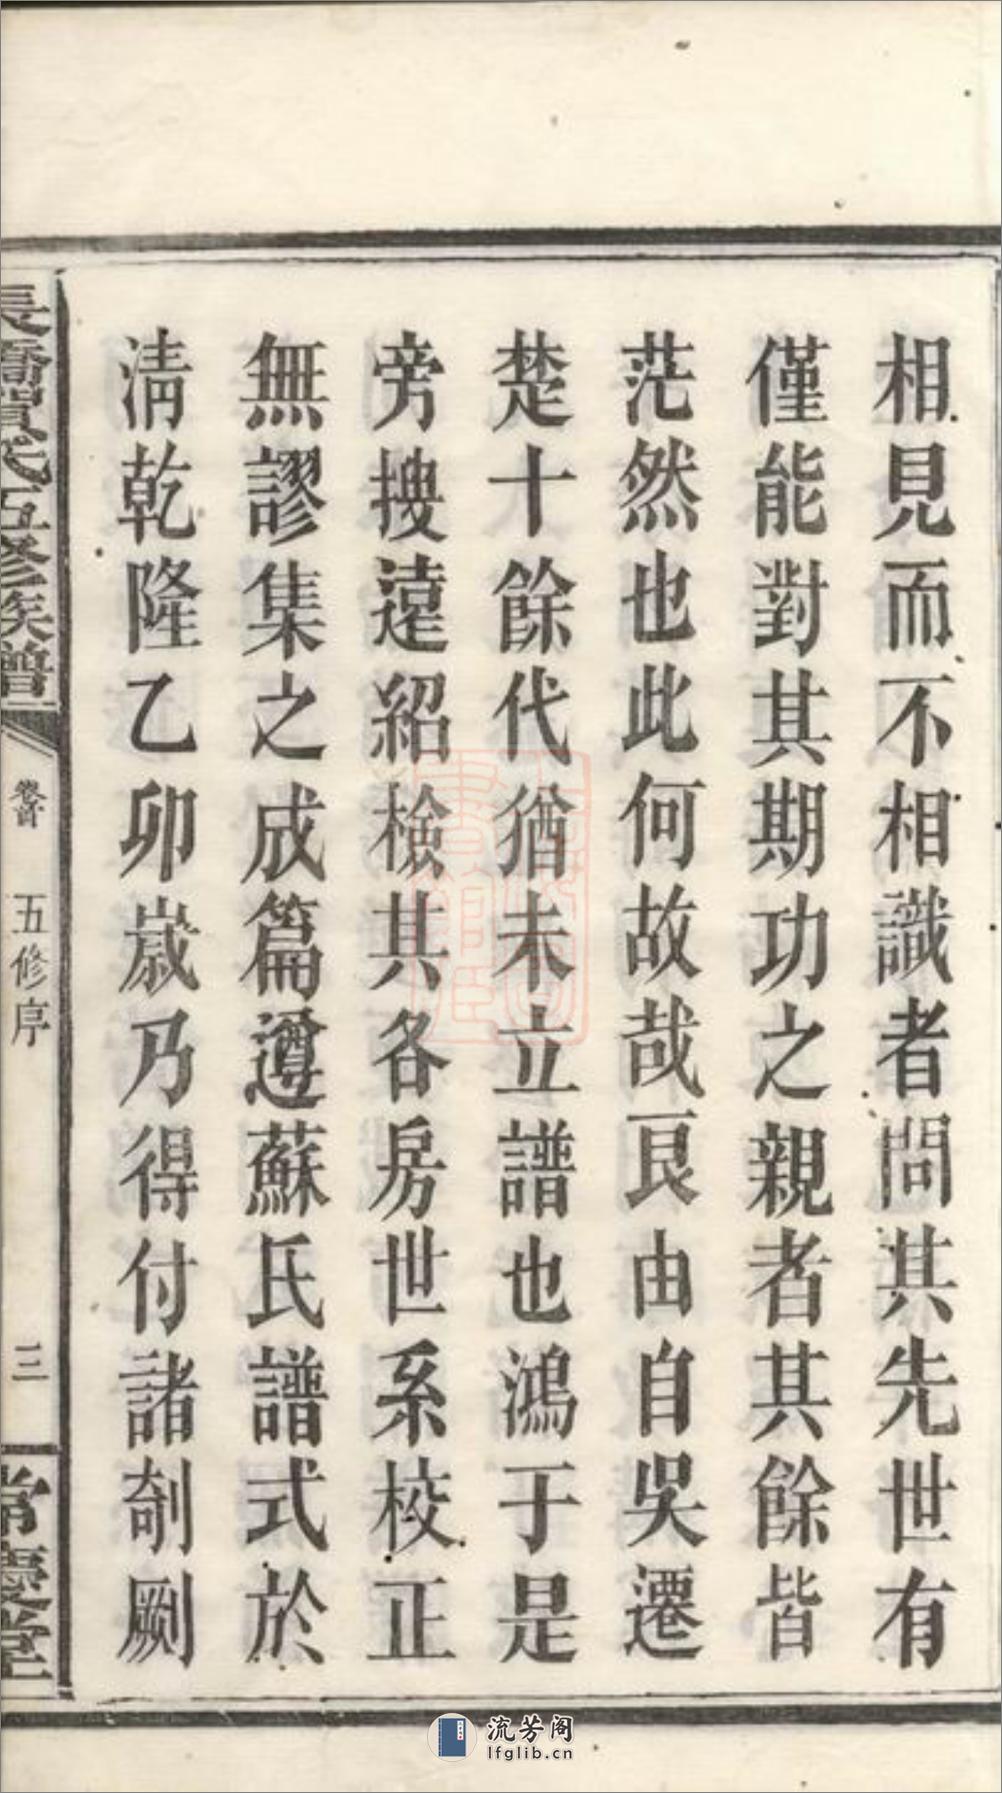 相見而不相識者問其先世有
僅能對其期功之親者其餘皆
茫然也此何故哉良由自吳遷
楚十餘代猶未立譜也鴻于是
旁搜遠紹檢其各房世系校正
無謬集之成篇遵蘇氏譜式於
清乾隆乙卯歲乃得付諸剞劂
長橋賀氏五修族譜
卷首
五修序
三
常慶堂
流芳阁
lfglib.cn